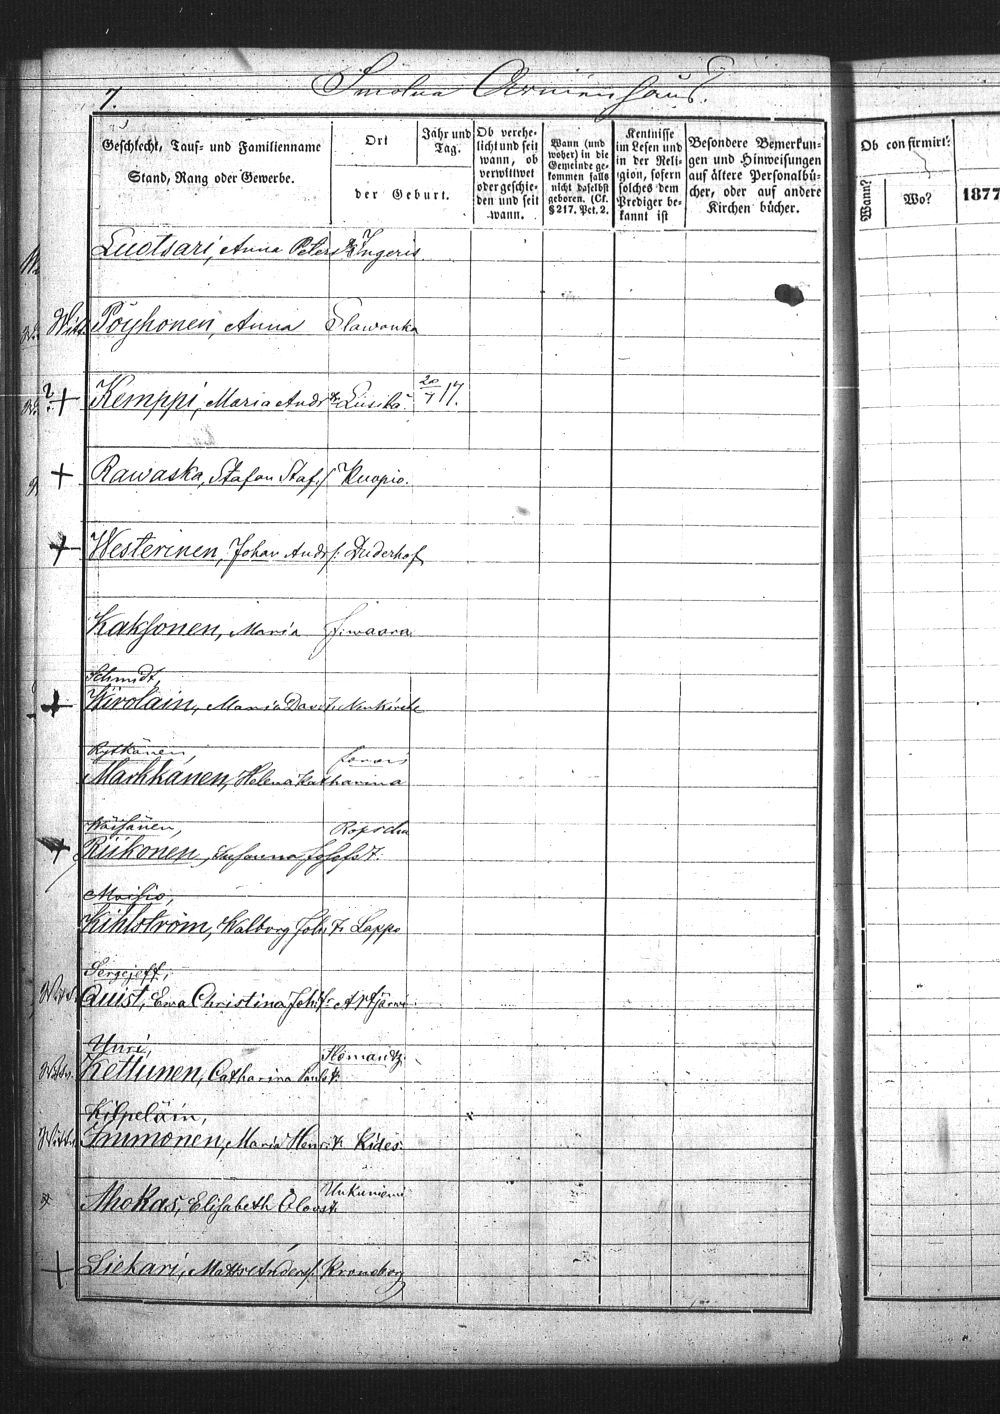 7.
Smolna Armenhaus.
Geschlecht, Tauf- und Familienname
Stand, Rang oder Gewerbe.
Ort
der Geburt.
Jahr und
Tag.
Ob verehe-
licht und seit
wann, ob
verwittwet
oder geschie-
den und seit
wann.
Wann (und
woher) in die
Gemeinde ge-
kommen falls
nicht daselbst
geboren. (Cf.
§ 217. Pct. 2.
Kentnisse
im Lesen und
in der Reli-
gion, sofern
solches dem
Prediger be-
kannt ist
Besondere Bemerkun-
gen und Hinweisungen
auf ältere Personalbü-
cher, oder auf andere
Kirchen bücher.
Ob confirmirt:
Wann?
Wo?
1877
Luotsari, Anna Peters Ingeris.
Witt. Pöyhonen, Anna Slawanka
+ Kemppi, Maria Andr Liisilä. 20/1 17.
+ Rawaska, Stafan Staf. Kuopio.
+ Westerinen, Johan Andr. Duderhof
Kaksonen, Maria
Schmidt,
+ Kirolain, Maria Davt. Neukirche
Rytkänen,
Markkanen, Helena Katharina
Wäisänen, Ropscha
+ Riikonen, Susanna Josefst.
Moisio,
Kihlström, Walborg Joh. t. Lappo
Sergejeff,
Quist, Ewa Christina Joh. t. Artjärwi
Yuri,
Kettunen, Catharina Pauls t.
Kilpeläin,
Immonen, Maria Henr. t. Kides.
Ahokas, Elisabeth Olovst. Unkuniemi
+ Liekari, Matts Anders. Kronoborg